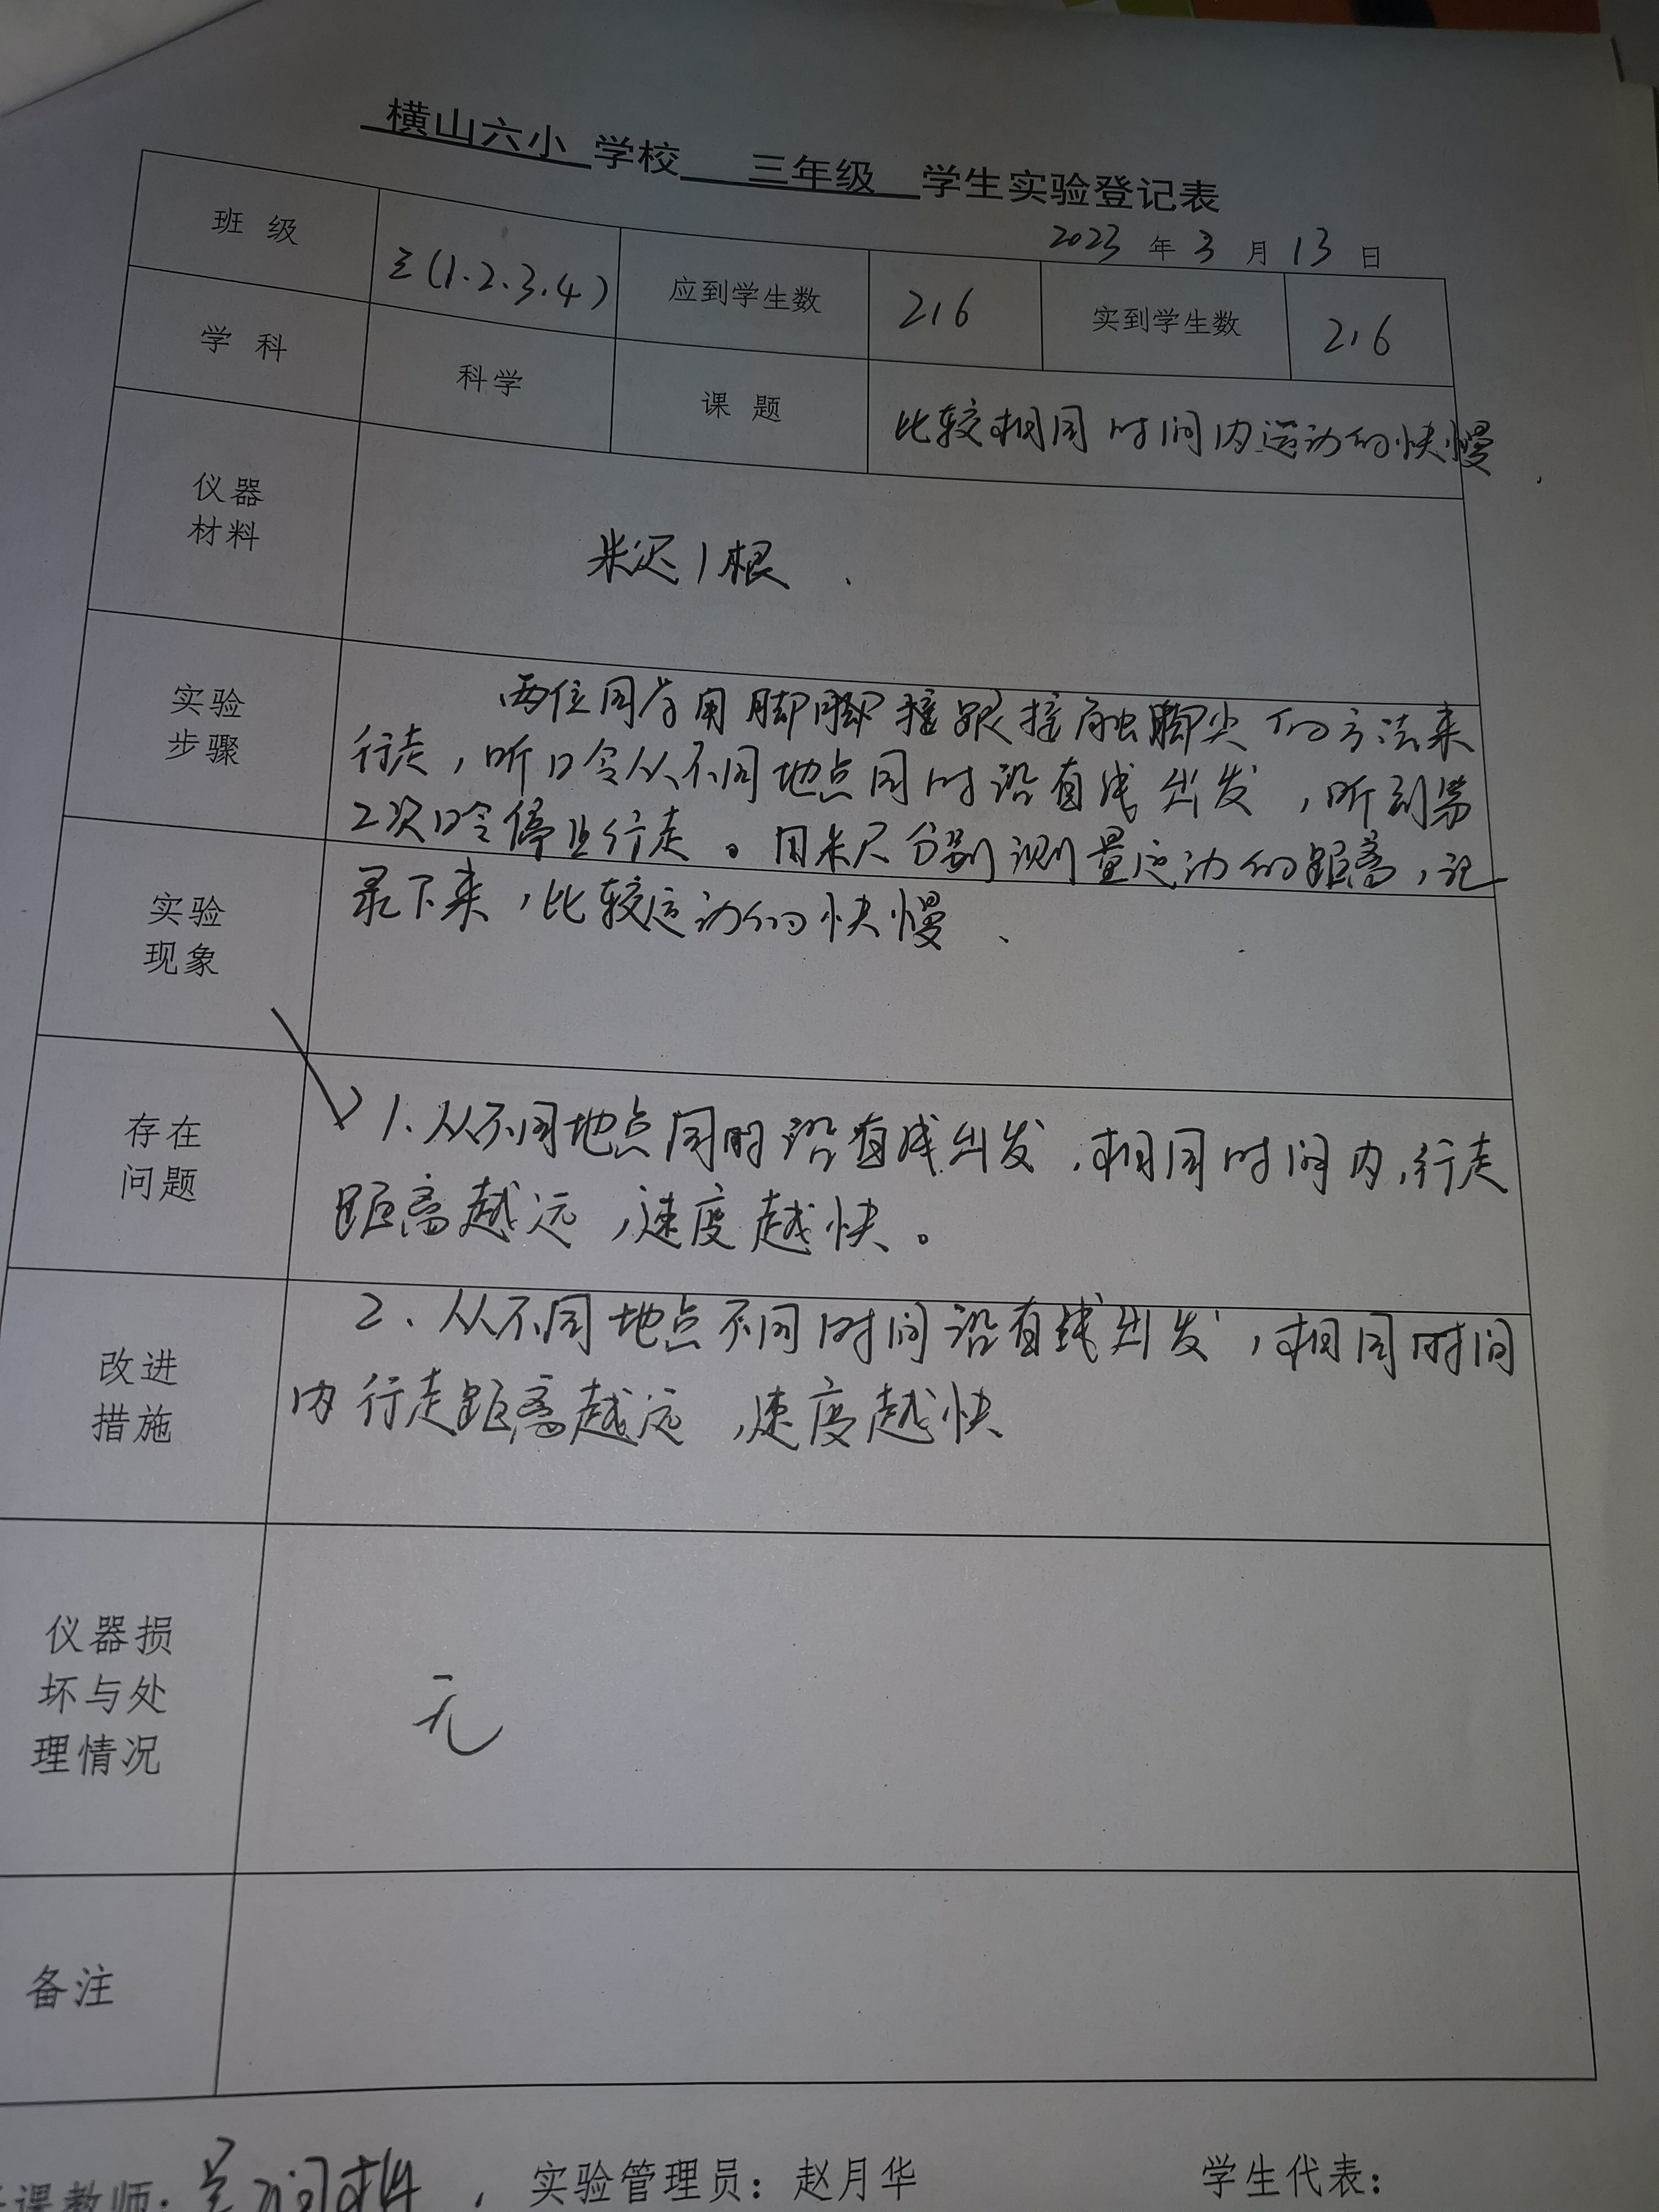 横山六小 学校 三年级 学生实验登记表
2023 年 3 月 13 日
班 级 三(1.2.3.4) 应到学生数 216 实到学生数 216
学 科 科学 课 题 比较相同时间内运动的快慢
仪器
材料
米尺1根
实验
步骤
两位同学用脚脚 跟接触脚尖的方法来
行走，听口令从不同地点同时沿直线出发，听到第
2次口令停止行走。用米尺分别测量运动的距离，记
实验
现象
录下来，比较运动的快慢
存在
问题
1.从不同地点同时沿直线出发，相同时间内，行走
距离越远，速度越快。
改进
措施
2.从不同地点不同时间沿直线出发，相同时间
内行走距离越远，速度越快
仪器损
坏与处
理情况
无
备注
课教师： 实验管理员：赵月华 学生代表：